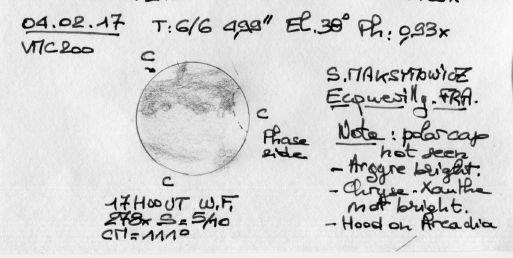 04.02.17 T: 6/6 4,99" El. 38° Ph: 0,93x
VMC200
C
S. MAKSYMOWICZ
Ecquevilly. FRA.
C
Phase side
Note: polar cap
not seen
- Argyre bright.
- Chryse - Xanthe
not bright.
- Hood on Arcadia
C
17H00 UT W.F.
278x S = 5/10
CM = 111°